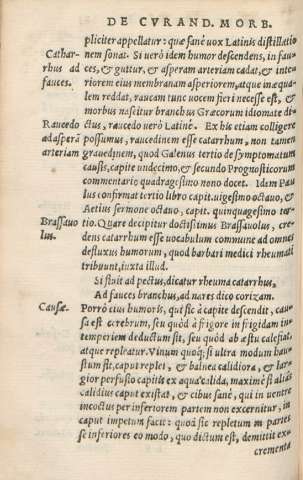 DE CVRAND. MORB.
pliciter appellatur: quæ sanè vox Latinis distillatio
Cathar-
rhus ad
fauces.
nem sonat. Si uerò idem humor descendens, in fau-
ces, & guttur, & asperam arteriam cadat, & inte-
riorem eius membranam asperiorem, atque inæqua-
lem reddat, raucam tunc vocem fieri necesse est, &
morbus nascitur branchus Græcorum idiomate di-
Raucedo
ad asperã
arteriam
ctus, raucedo uerò Latinè. Ex his etiam colligere
possumus, raucedinem esse catarrhum, non tamen
grauedinem, quod Galenus tertio de symptomatum
causis, capite undecimo, & secundo Prognosticorum
commentario quadragesimo neno docet. Idem Pau
lus confirmat tertio libro capit. uigesimo octauo, &
Aetius sermone octauo, capit. quinquagesimo ter-
Brassauo
lus.
tio. Quare decipitur doctissimus Brassauolus, cre-
dens catarrhum esse uocabulum commune ad omnes
defluxus humorum, quod barbari medici rheumati
tribuunt, iuxta illud.
Si fluit ad pectus, dicatur rheuma catarrhus,
Ad fauces branchus, ad nares dico corizam.
Causæ.
Porrò eius humoris, qui sic à capite descendit, cau-
sa est cerebrum, seu quòd à frigore in frigidam in-
temperiem deductum sit, seu quòd ab æstu calefiat,
atque repleatur. Vinum quoq; si ultra modum hau-
stum sit, caput replet, & balnea calidiora, & lar-
gior perfusio capitis ex aqua calida, maximè si aliàs
calidius caput existat, & cibus sanè, qui in uentre
incoctus per inferiorem partem non excernitur, in
caput impetum facit: quòd sic repletum in partes
se inferiores eo modo, quo dictum est, demittit ex-
crementa